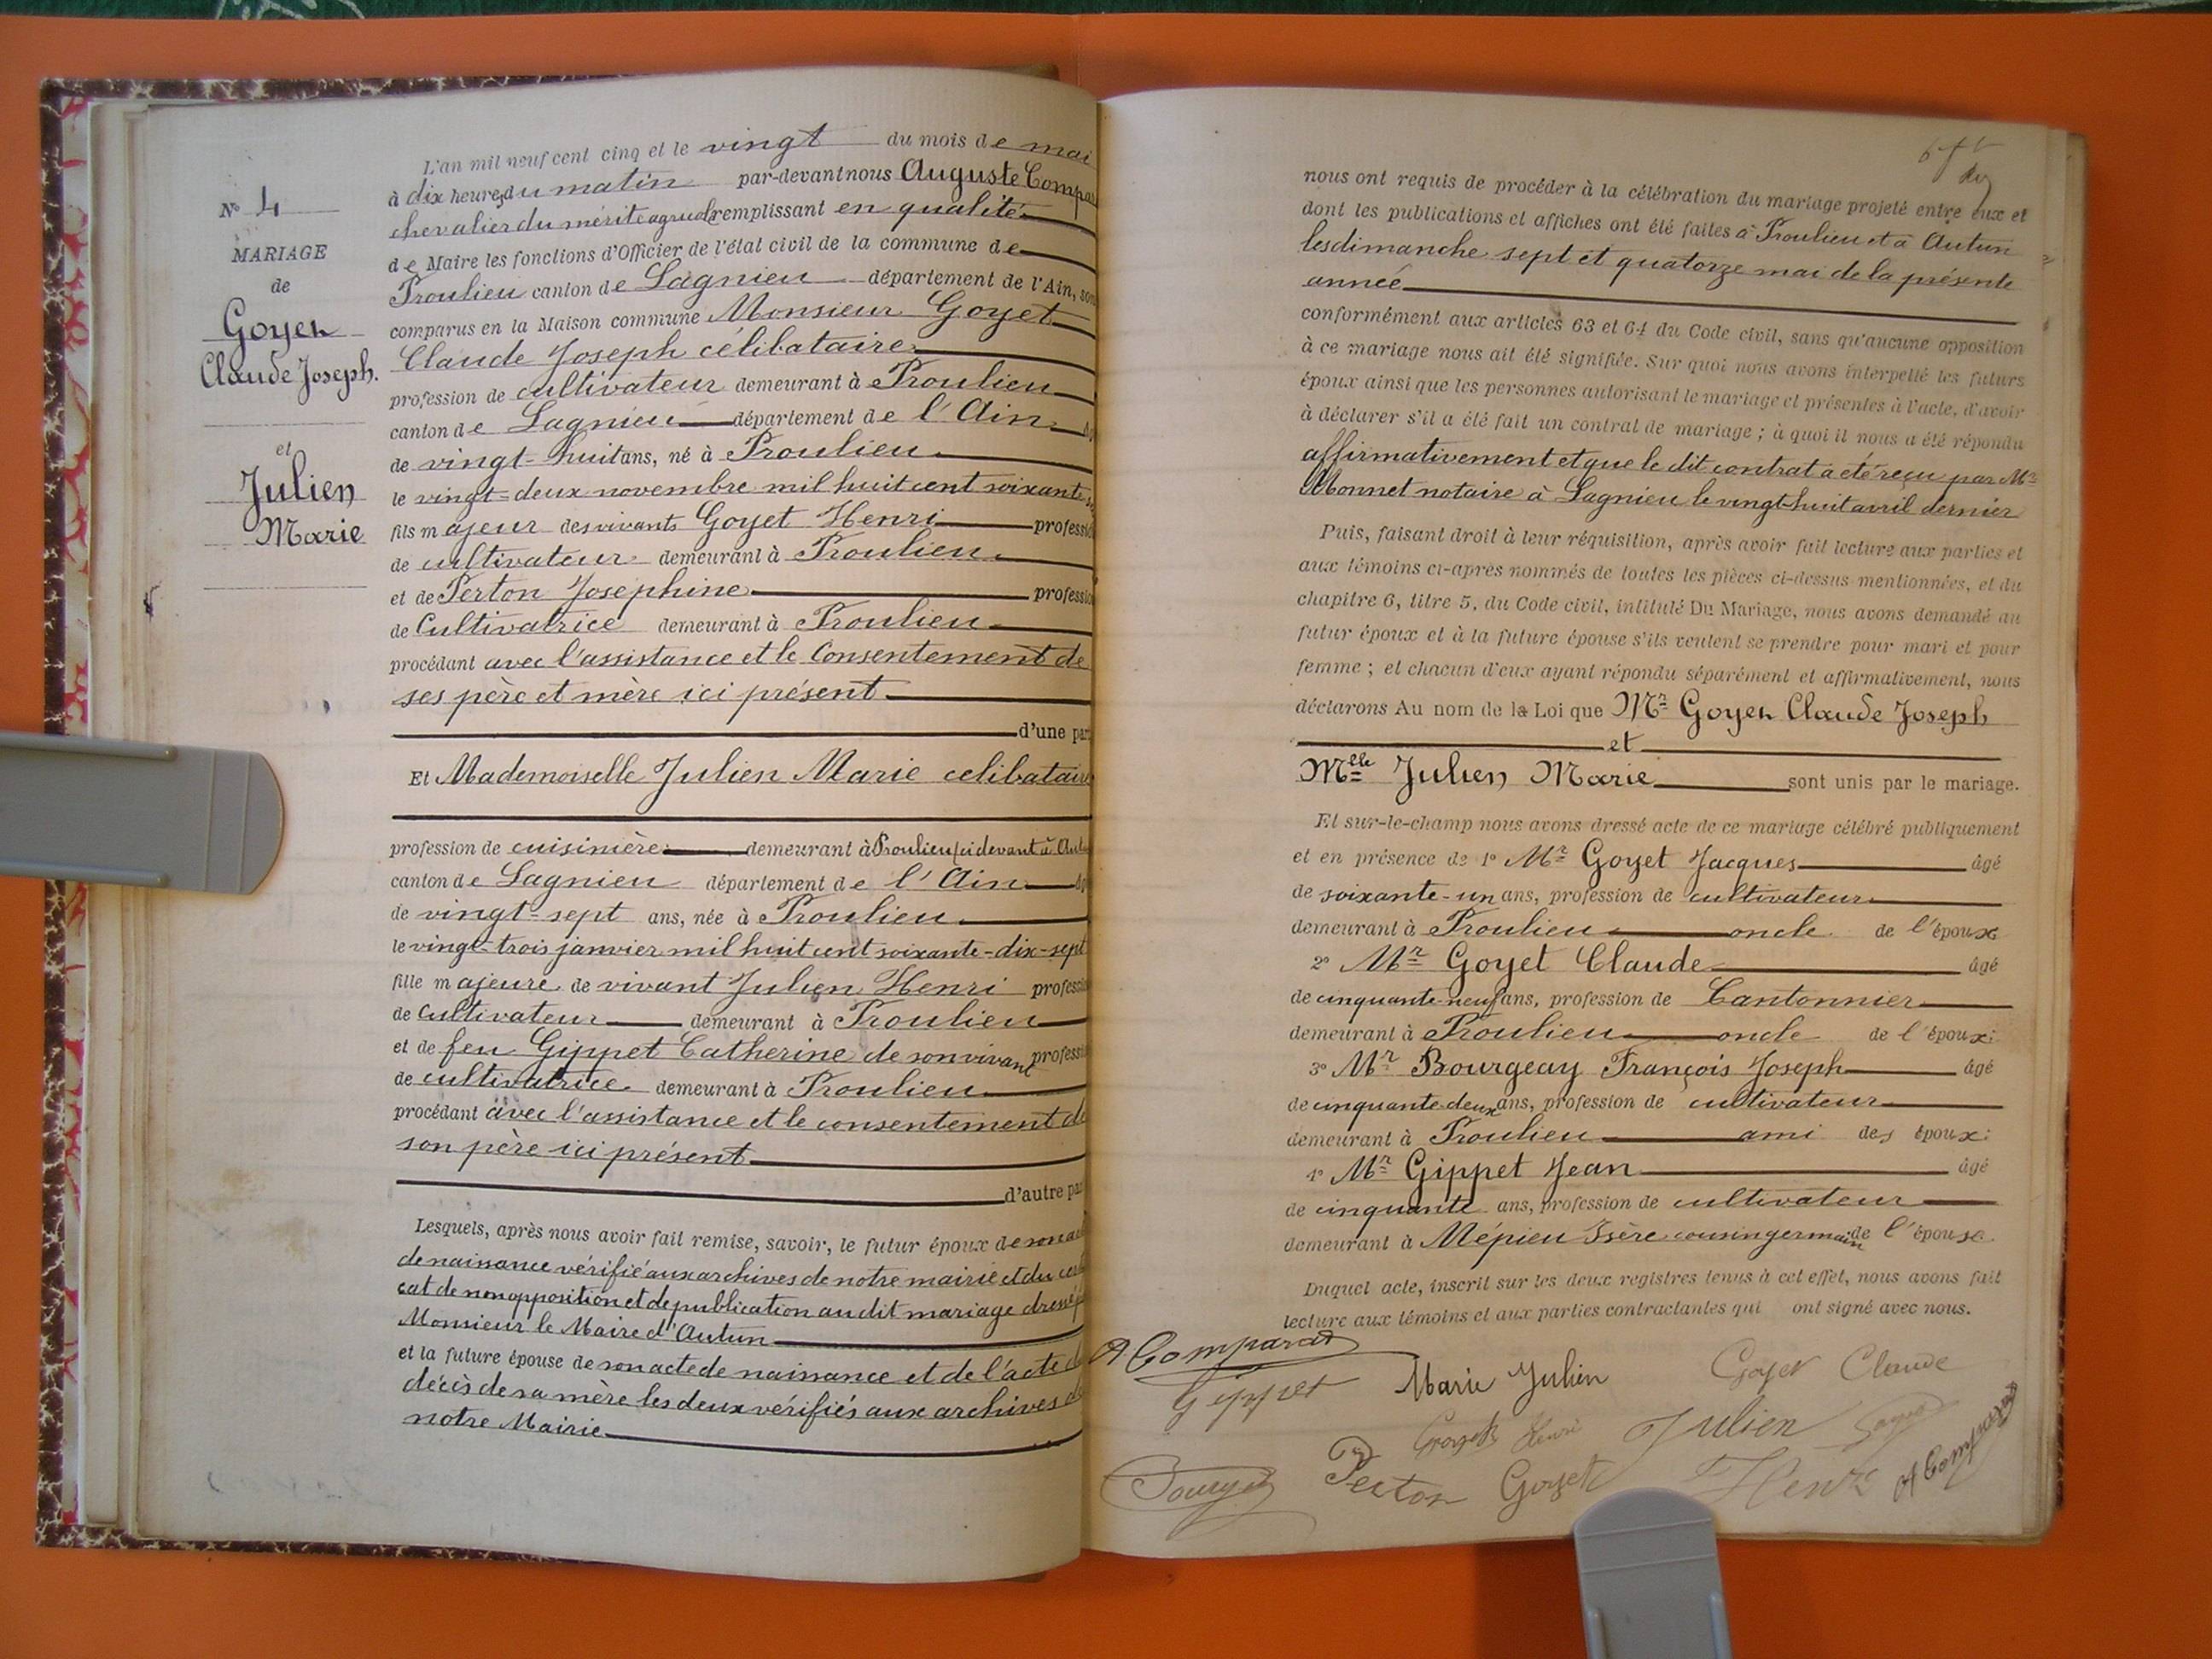 L'an mil neuf cent cinq et le vingt du mois de mai
à dix heures du matin par-devant nous Auguste Compar
chevalier du mérite agricole remplissant en qualité
de Maire les fonctions d'Officier de l'état civil de la commune de
Proulieu canton de Lagnieu département de l'Ain, sont
comparus en la Maison commune Monsieur Goyet
Claude Joseph célibataire
profession de cultivateur demeurant à Proulieu
canton de Lagnieu département de l'Ain
de vingt-huit ans, né à Proulieu
le vingt-deux novembre mil huit cent soixante
fils majeur des vivants Goyet Henri profession
de cultivateur demeurant à Proulieu
et de Perton Joséphine profession
de Cultivatrice demeurant à Proulieu
procédant avec l'assistance et le Consentement de
ses père et mère ici présent
d'une part
Et Mademoiselle Julien Marie celibataire
profession de cuisinière demeurant à Proulieu ci devant à Autu
canton de Lagnieu département de l'Ain
de vingt-sept ans, née à Proulieu
le vingt-trois janvier mil huit cent soixante-dix-sept
fille majeure de vivant Julien Henri profession
de Cultivateur demeurant à Proulieu
et de feu Gippet Catherine de son vivant profession
de cultivatrice demeurant à Proulieu
procédant avec l'assistance et le consentement de
son père ici présent
d'autre part
Lesquels, après nous avoir fait remise, savoir, le futur époux de son
de naissance vérifié aux archives de notre mairie et du certi
cat de non opposition et de publication au dit mariage dressé p
Monsieur le Maire d'Autun
et la future épouse de son acte de naissance et de l'acte de
décès de sa mère les deux vérifiés aux archives de
notre Mairie
N° 4
MARIAGE
de
Goyet
Claude Joseph.
et
Julien
Marie
nous ont requis de procéder à la célébration du mariage projeté entre eux et
dont les publications et affiches ont été faites à Proulieu et à Autun
les dimanche sept et quatorze mai de la présente
année
conformément aux articles 63 et 64 du Code civil, sans qu'aucune opposition
à ce mariage nous ait été signifiée. Sur quoi nous avons interpellé les futurs
époux ainsi que les personnes autorisant le mariage et présentes à l'acte, d'avoir
à déclarer s'il a été fait un contrat de mariage ; à quoi il nous a été répondu
affirmativement et que le dit contrat a été reçu par Me
Monnet notaire à Lagnieu le vingt-huit avril dernier
Puis, faisant droit à leur réquisition, après avoir fait lecture aux parties et
aux témoins ci-après nommés de toutes les pièces ci-dessus mentionnées, et du
chapitre 6, titre 5, du Code civil, intitulé Du Mariage, nous avons demandé au
futur époux et à la future épouse s'ils veulent se prendre pour mari et pour
femme ; et chacun d'eux ayant répondu séparément et affirmativement, nous
déclarons Au nom de la Loi que Mr Goyet Claude Joseph
et
Mlle Julien Marie sont unis par le mariage.
Et sur-le-champ nous avons dressé acte de ce mariage célébré publiquement
et en présence de 1° Mr Goyet Jacques âgé
de soixante-un ans, profession de cultivateur
demeurant à Proulieu oncle de l'époux
2° Mr Goyet Claude âgé
de cinquante-neuf ans, profession de Cantonnier
demeurant à Proulieu oncle de l'époux
3° Mr Bourgeay François Joseph âgé
de cinquante-deux ans, profession de cultivateur
demeurant à Proulieu ami des époux
4° Mr Gippet Jean âgé
de cinquante ans, profession de cultivateur
demeurant à Mépieu Isère cousin germain de l'épouse
Duquel acte, inscrit sur les deux registres tenus à cet effet, nous avons fait
lecture aux témoins et aux parties contractantes qui ont signé avec nous.
A Comparat
Gippet Marie Julien Goyet Claude
Goyet Henri Julien
Perton Goyet Henri A Comparat